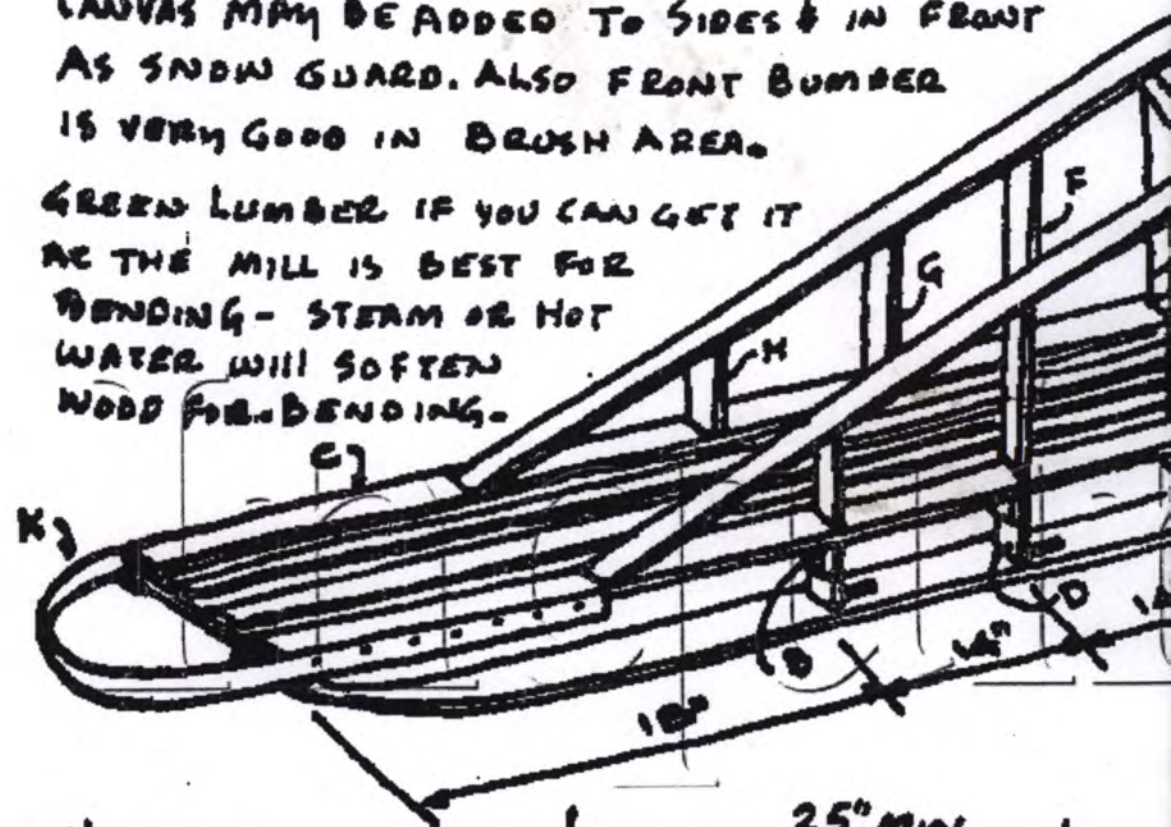 CANVAS MAY BE ADDED TO SIDES & IN FRONT
AS SNOW GUARD. ALSO FRONT BUMBER
IS VERY GOOD IN BRUSH AREA.
GREEN LUMBER IF YOU CAN GET IT
AT THE MILL IS BEST FOR
BENDING - STEAM OR HOT
WATER WILL SOFTEN
WOOD FOR BENDING.
F
G
H
C
K
D
B
14"
18"
25"